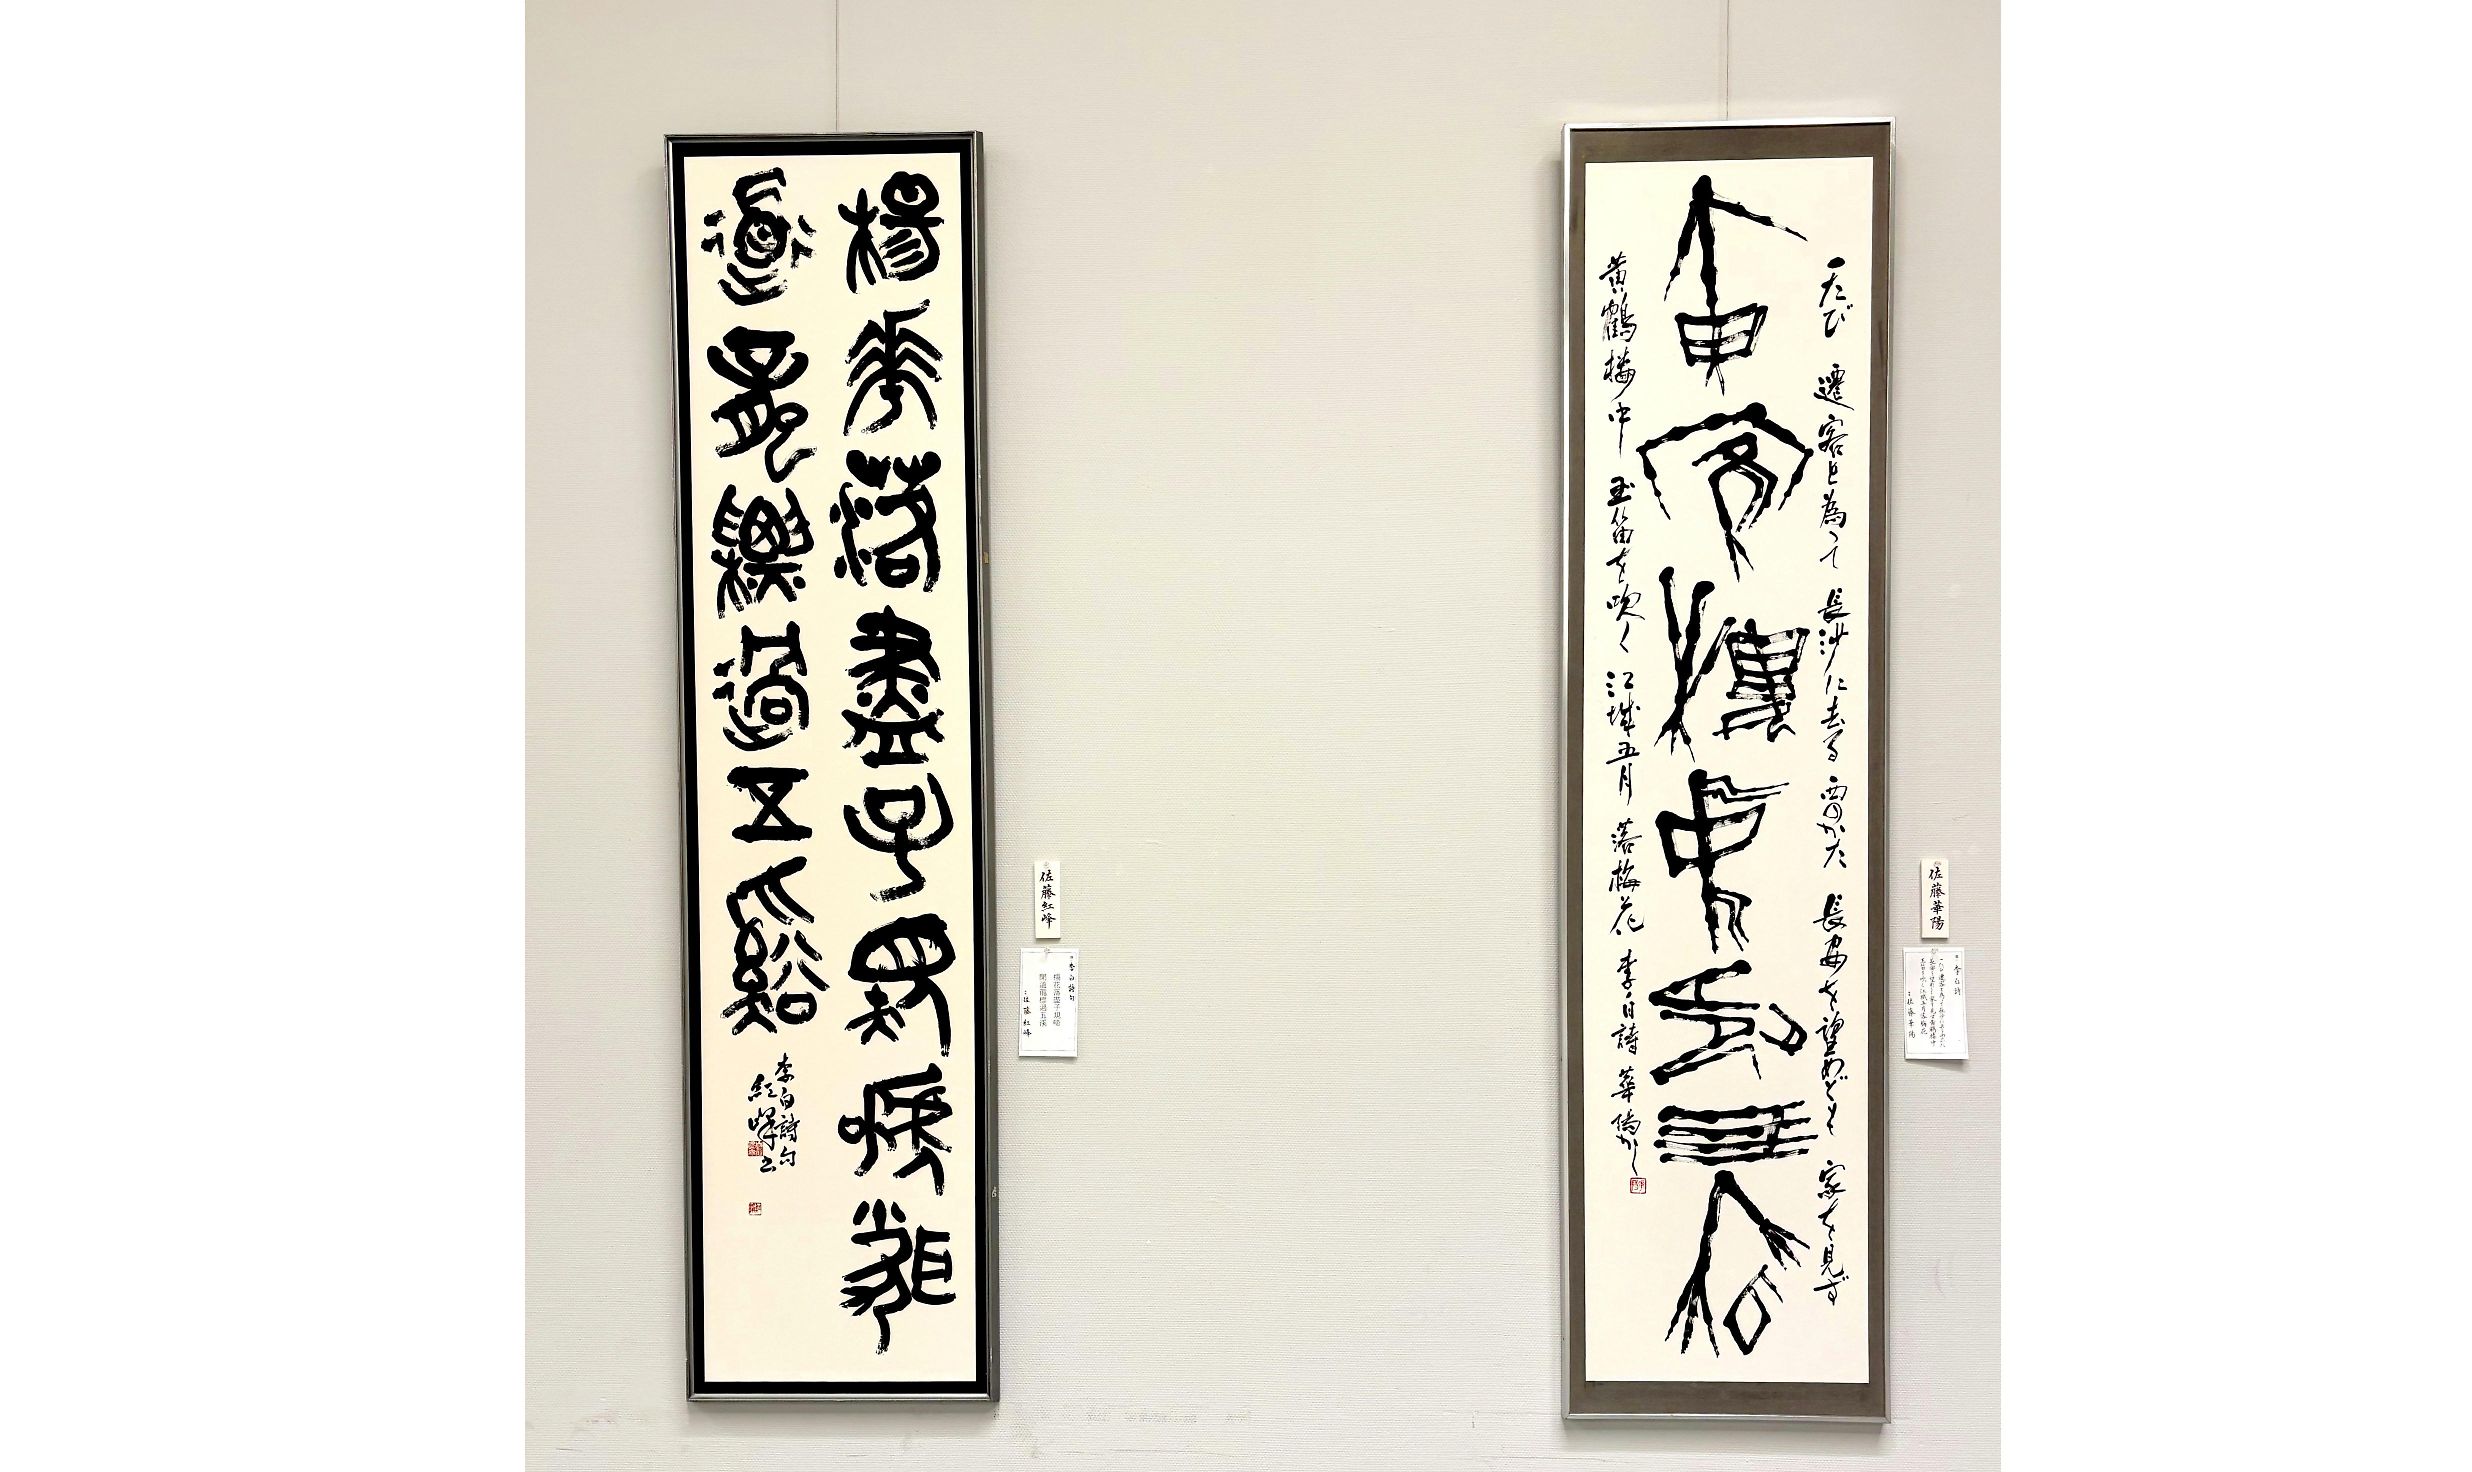 楊花落盡子規啼聞
道龍標過五谿
李白詩句
紅峰書
佐藤紅峰
李白詩句
楊花落盡子規啼
聞道龍標過五溪
佐藤紅峰
一たび 遷客と為って 長沙に去る 西のかた 長安を望めども 家を見ず
黄鶴楼中 玉笛を吹く 江城五月 落梅花 李白詩 華陽かく
佐藤華陽
李白詩
佐藤華陽